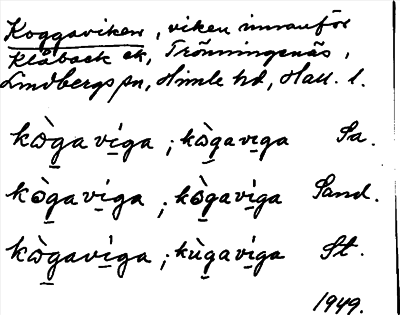 Koggaviken, viken innanför
Klåback ek, Trönningenäs,
Lindbergs sn, Himle hd, Hall. l.
kὼg̱avi̱ga ; kὼg̱avi̱ga Sa.
kὼg̱avi̱ga ; kὼg̱avi̱ga Sand.
kὼg̱avi̱ga ; kùg̱avi̱ga St.
1949.